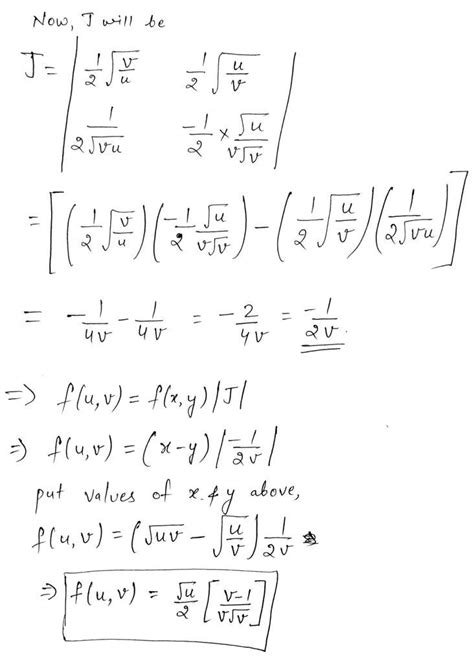 Now, J will be
J = | 1/2 √(v/u)    1/2 √(u/v) |
| 1/(2√vu)    -1/2 × √u/(v√v) |
= [(1/2 √(v/u)) (-1/2 √u/(v√v)) - (1/2 √(u/v)) (1/(2√vu))]
= -1/4v - 1/4v = -2/4v = -1/2v.
=> f(u,v) = f(x,y) |J|
=> f(u,v) = (x-y) |-1/2v|
put values of x & y above,
f(u,v) = (√uv - √(u/v)) 1/2v
=> f(u,v) = √u/2 [(v-1)/(v√v)]